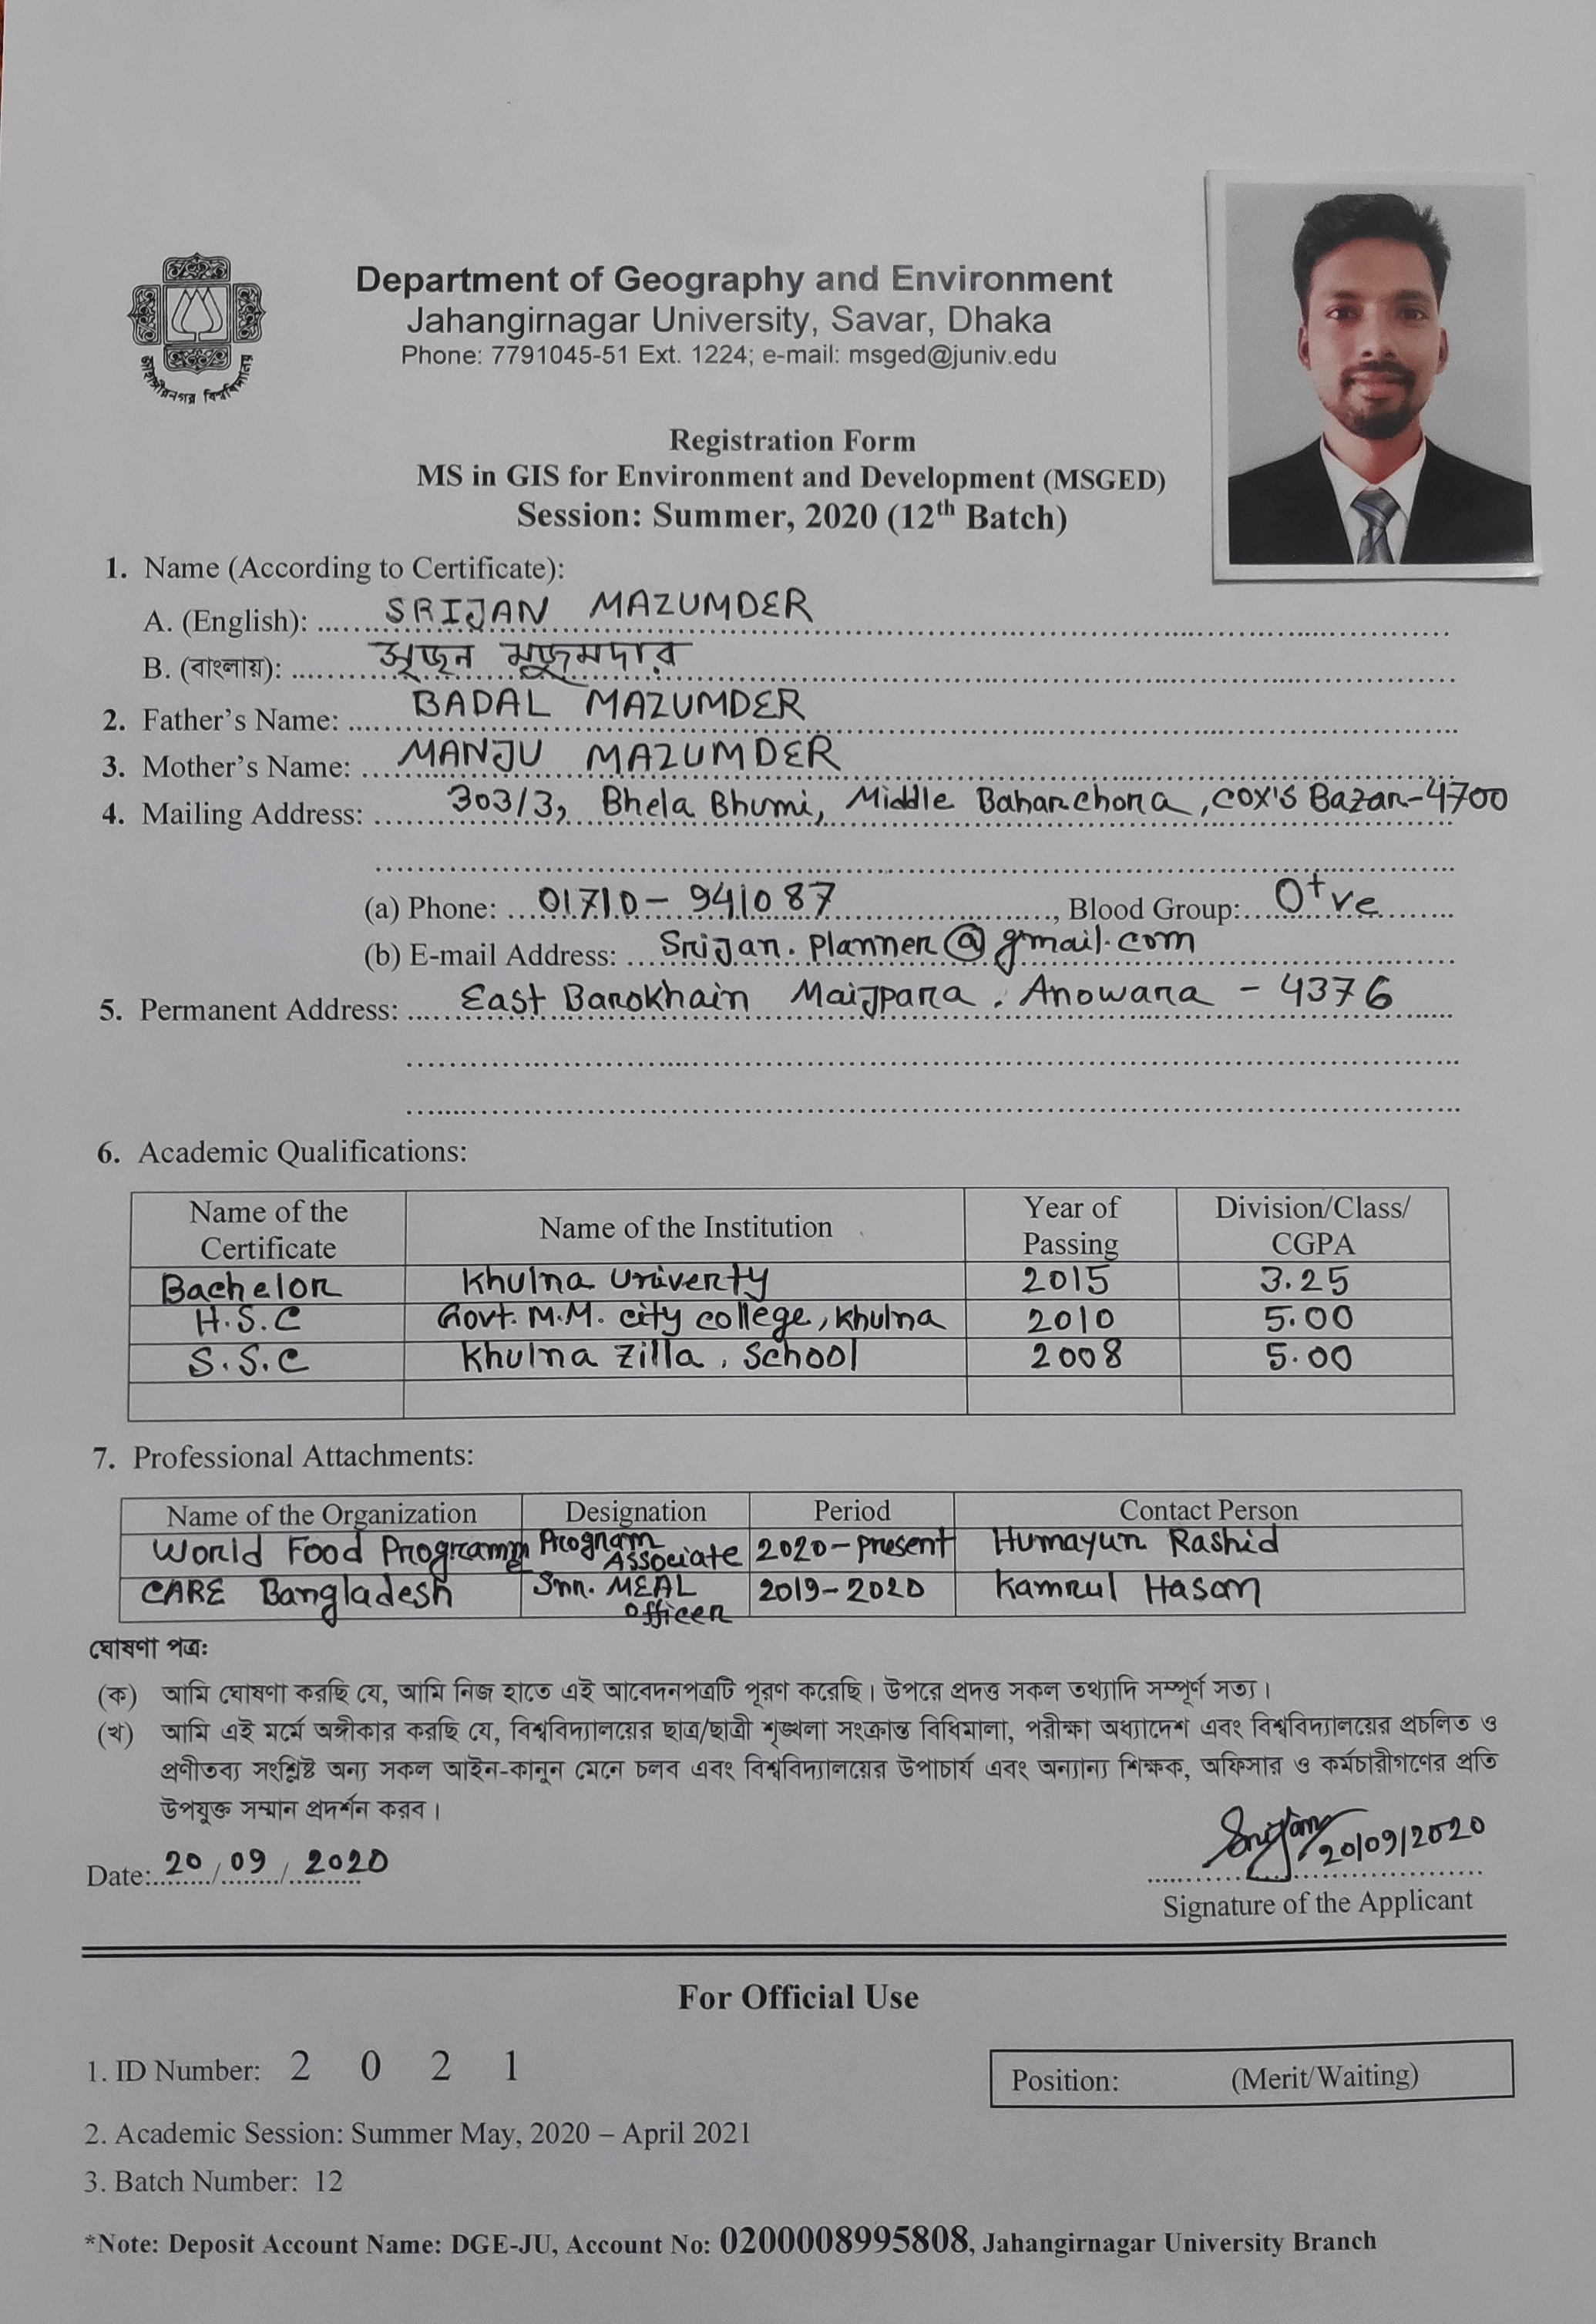 জাহাঙ্গীরনগর বিশ্ববিদ্যালয়
Department of Geography and Environment
Jahangirnagar University, Savar, Dhaka
Phone: 7791045-51 Ext. 1224; e-mail: msged@juniv.edu
Registration Form
MS in GIS for Environment and Development (MSGED)
Session: Summer, 2020 (12th Batch)
1. Name (According to Certificate):
A. (English): SRIJAN MAZUMDER
B. (বাংলায়): সৃজন মজুমদার
2. Father's Name: BADAL MAZUMDER
3. Mother's Name: MANJU MAZUMDER
4. Mailing Address: 303/3, Bhela Bhumi, Middle Baharchora, COX'S Bazar-4700
(a) Phone: 01710-941087, Blood Group: O+ve
(b) E-mail Address: Srijan.planner@gmail.com
5. Permanent Address: East Barokhain Maijpara, Anowara - 4376
6. Academic Qualifications:
Name of the Certificate Name of the Institution Year of Passing Division/Class/CGPA
Bachelor Khulna Univerty 2015 3.25
H.S.C Govt. M.M. city college, Khulna 2010 5.00
S.S.C Khulna Zilla, School 2008 5.00
7. Professional Attachments:
Name of the Organization Designation Period Contact Person
World Food Programme Program Associate 2020-present Humayun Rashid
CARE Bangladesh Snr. MEAL officer 2019-2020 Kamrul Hasan
ঘোষণা পত্র:
(ক) আমি ঘোষণা করছি যে, আমি নিজ হাতে এই আবেদনপত্রটি পূরণ করেছি। উপরে প্রদত্ত সকল তথ্যাদি সম্পূর্ণ সত্য।
(খ) আমি এই মর্মে অঙ্গীকার করছি যে, বিশ্ববিদ্যালয়ের ছাত্র/ছাত্রী শৃঙ্খলা সংক্রান্ত বিধিমালা, পরীক্ষা অধ্যাদেশ এবং বিশ্ববিদ্যালয়ের প্রচলিত ও
প্রণীতব্য সংশ্লিষ্ট অন্য সকল আইন-কানুন মেনে চলব এবং বিশ্ববিদ্যালয়ের উপাচার্য এবং অন্যান্য শিক্ষক, অফিসার ও কর্মচারীগণের প্রতি
উপযুক্ত সম্মান প্রদর্শন করব।
Srijan 20/09/2020
Date: 20/09/2020
Signature of the Applicant
For Official Use
1. ID Number: 2 0 2 1
Position: (Merit/Waiting)
2. Academic Session: Summer May, 2020 – April 2021
3. Batch Number: 12
*Note: Deposit Account Name: DGE-JU, Account No: 0200008995808, Jahangirnagar University Branch